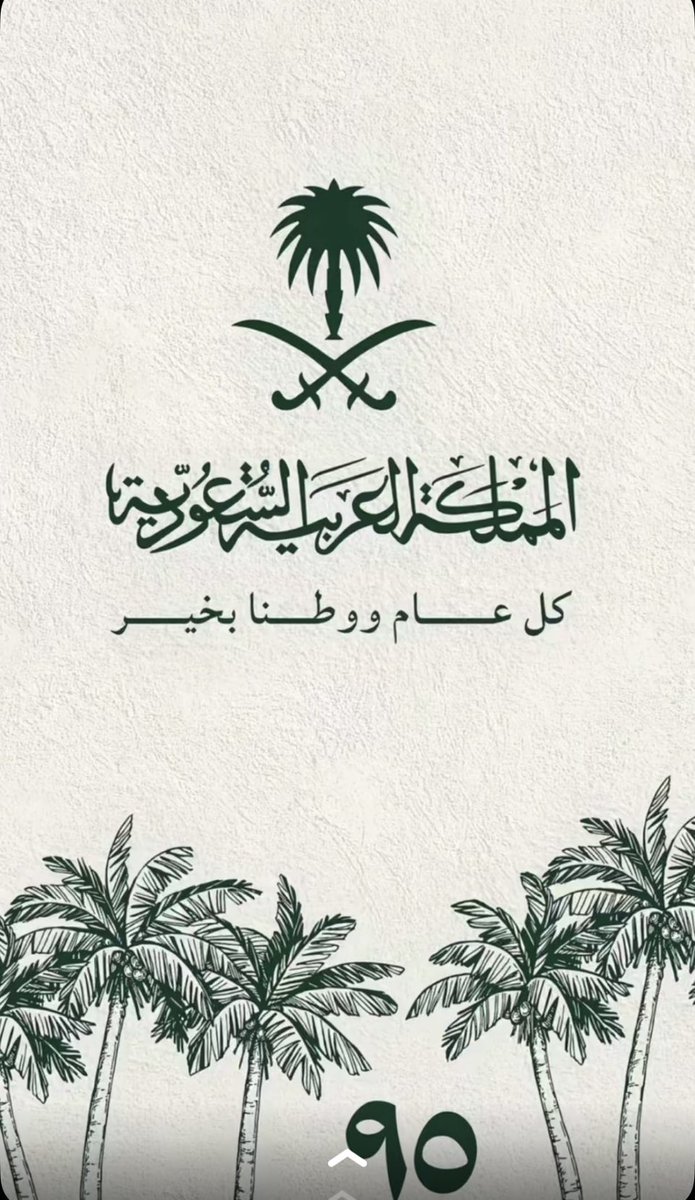 المملكة العربية السعودية
كل عام ووطنا بخير
٩٥